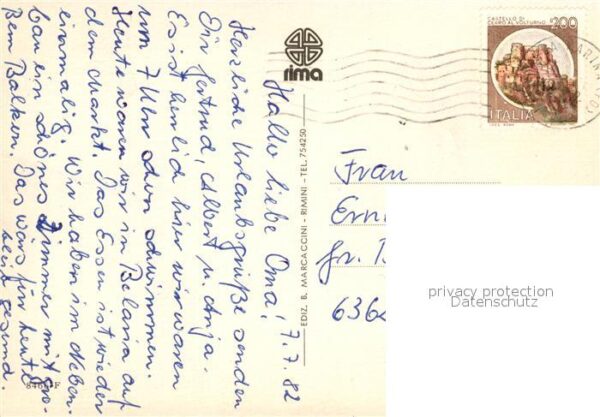 7.7.82
Hallo liebe Oma!
Herzliche Urlaubsgrüße senden
Dir Gertrud, Albert u. Anja.
Es ist herrlich hier wir waren
um 7 Uhr schon schwimmen.
Heute waren wir in Belaria auf
dem Markt. Das Essen ist wieder
einmalig. Wir haben im Neben-
bau ein schönes Zimmer mit gro-
ßem Balkon. Das wars für heute
bleib gesund.
8464-F
rima
EDIZ. B. MARCACCINI - RIMINI - TEL. 754250
CASTELLO DI
CERRO AL VOLTURNO
200
ITALIA
Frau
Ern
Gr. B
636
privacy protection
Datenschutz